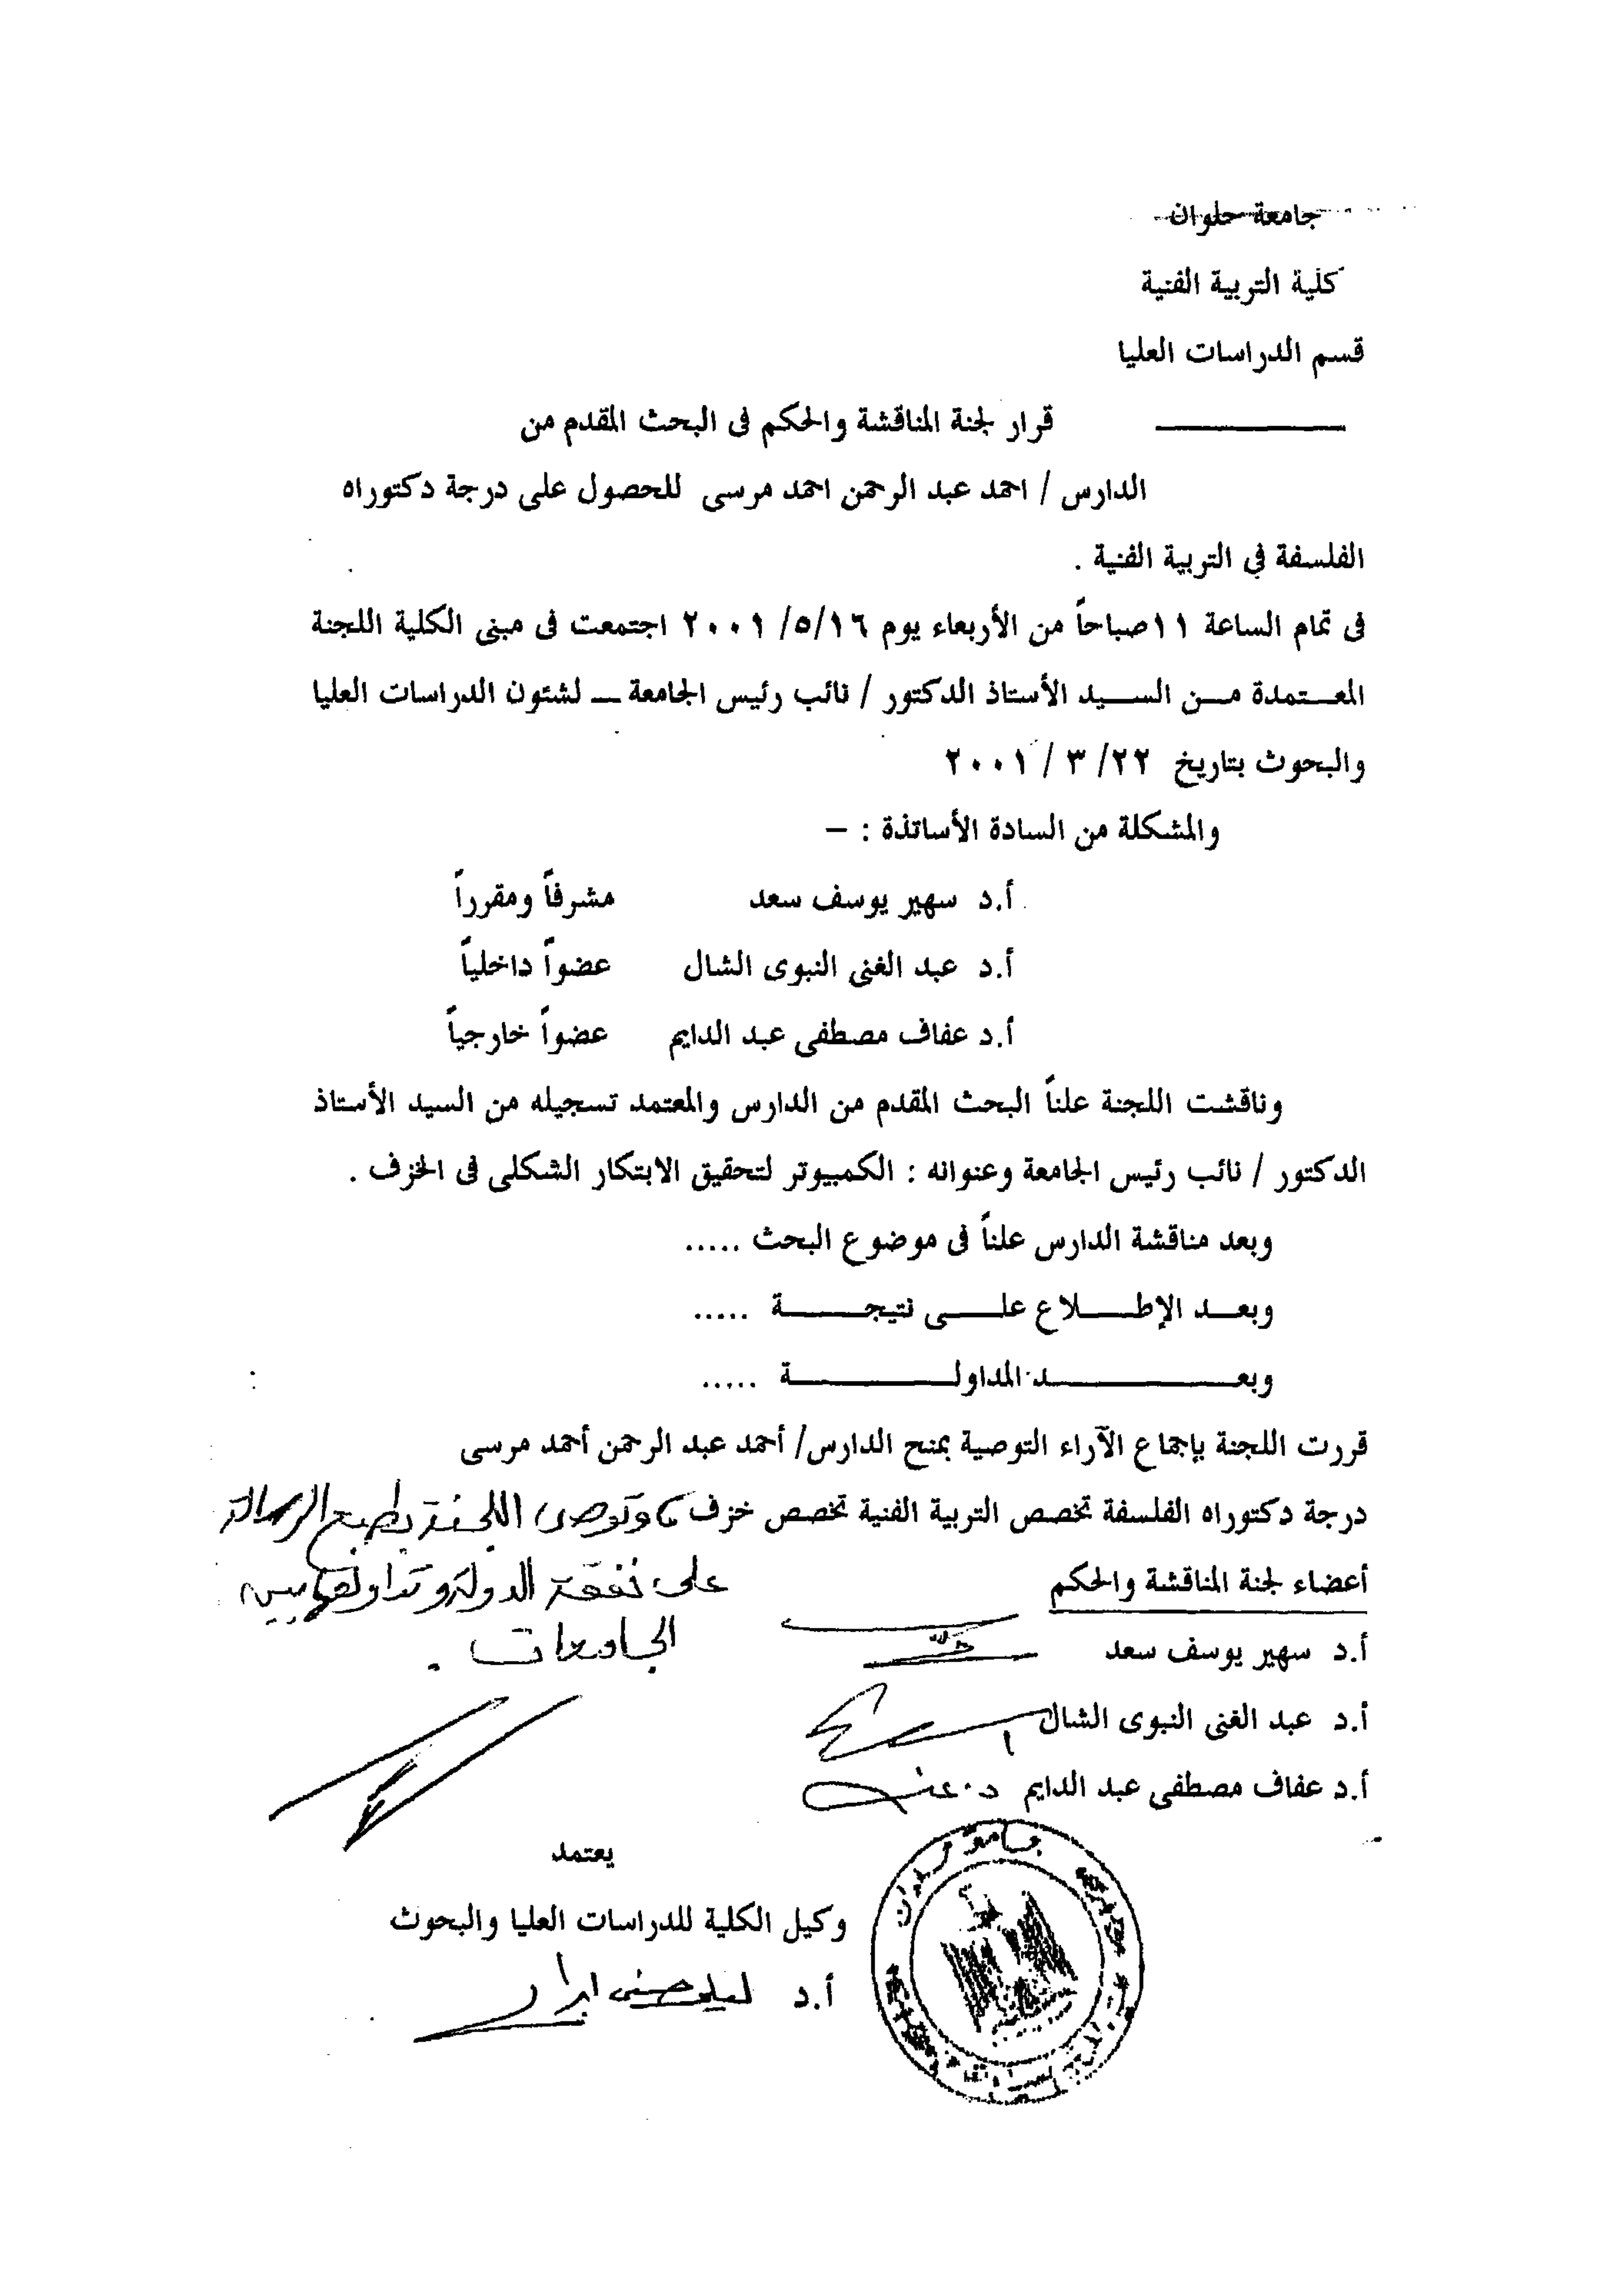 جامعة حلوان
كلية التربية الفنية
قسم الدراسات العليا
قرار لجنة المناقشة والحكم فى البحث المقدم من
الدارس / احمد عبد الرحمن احمد مرسى للحصول على درجة دكتوراه
الفلسفة في التربية الفنية .
فى تمام الساعة ١١ صباحاً من الأربعاء يوم ١٦/٥/ ٢٠٠١ اجتمعت فى مبنى الكلية اللجنة
المعـتمدة مـن السـيد الأستاذ الدكتور / نائب رئيس الجامعة ـ لشئون الدراسات العليا
والبحوث بتاريخ ٢٢/ ٣ / ٢٠٠١
والمشكلة من السادة الأساتذة : –
أ.د سهير يوسف سعد مشرفاً ومقرراً
أ.د عبد الغنى النبوى الشال عضواً داخلياً
أ.د عفاف مصطفى عبد الدايم عضواً خارجياً
وناقشت اللجنة علناً البحث المقدم من الدارس والمعتمد تسجيله من السيد الأستاذ
الدكتور / نائب رئيس الجامعة وعنوانه : الكمبيوتر لتحقيق الابتكار الشكلى فى الخزف .
وبعد مناقشة الدارس علناً فى موضوع البحث .....
وبعـد الإطـلاع علـى نتيجـة .....
وبعـد المداولـة .....
قررت اللجنة بإجماع الآراء التوصية بمنح الدارس/ أحمد عبد الرحمن أحمد مرسى
درجة دكتوراه الفلسفة تخصص التربية الفنية تخصص خزف ، وتوصى اللجنة بطبع الرسالة
على نفقة الدولة وتداولها بين
الجامعات .
أعضاء لجنة المناقشة والحكم
أ.د سهير يوسف سعد
أ.د عبد الغنى النبوى الشال
أ.د عفاف مصطفى عبد الدايم
يعتمد
وكيل الكلية للدراسات العليا والبحوث
أ.د ليلى حسنى
جامعة حلوان